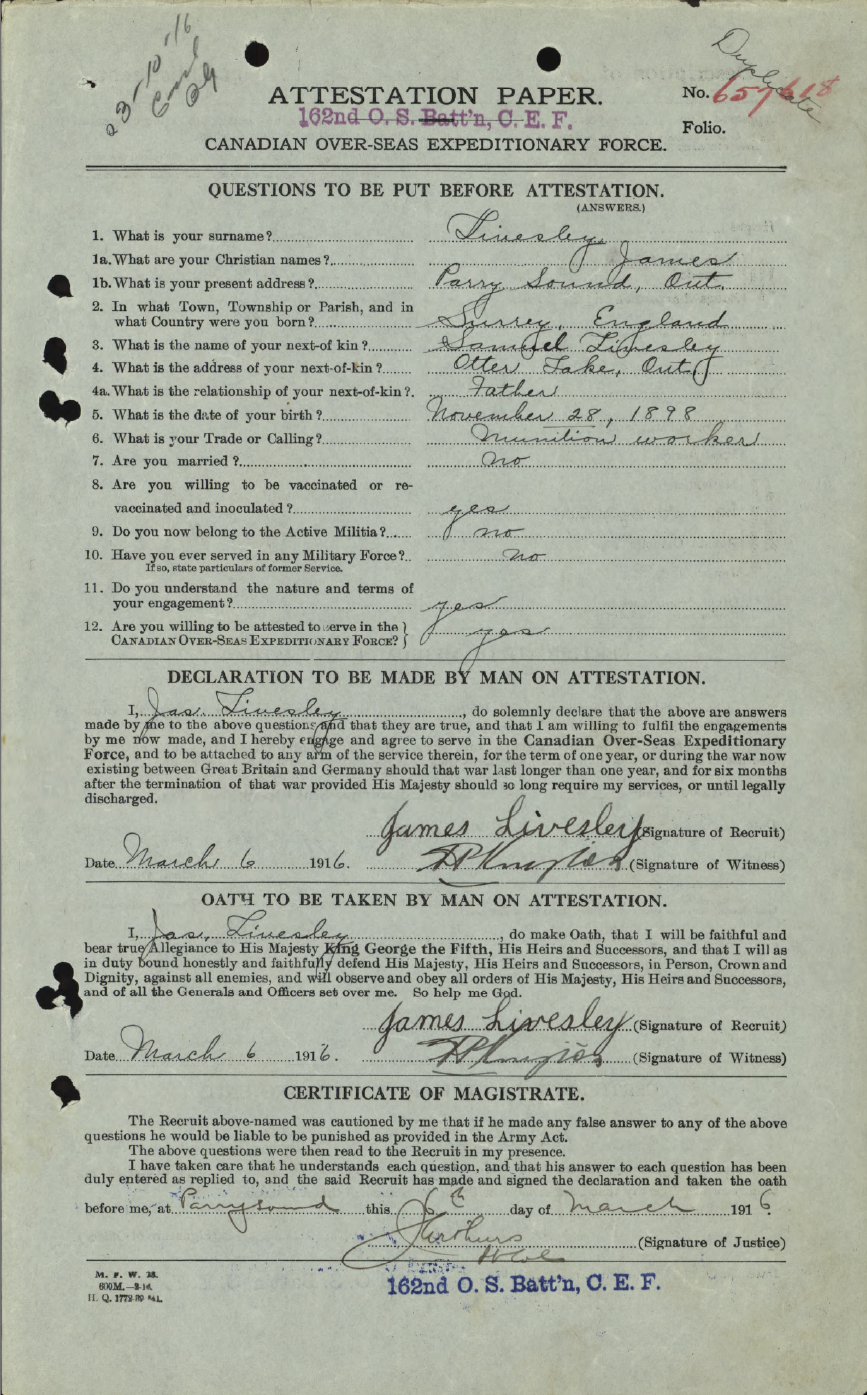 23-10-16
Duplicate
ATTESTATION PAPER. No. 657618
162nd O. S. Batt'n, C. E. F.
Folio.
CANADIAN OVER-SEAS EXPEDITIONARY FORCE.
QUESTIONS TO BE PUT BEFORE ATTESTATION.
(ANSWERS.)
1. What is your surname? Livesley
1a. What are your Christian names? James
1b. What is your present address? Parry Sound, Ont.
2. In what Town, Township or Parish, and in
what Country were you born? Surrey, England
3. What is the name of your next-of kin? Samuel Livesley
4. What is the address of your next-of-kin? Otter Lake, Ont
4a. What is the relationship of your next-of-kin? Father
5. What is the date of your birth? November 28, 1898
6. What is your Trade or Calling? Munition worker
7. Are you married? no
8. Are you willing to be vaccinated or re-
vaccinated and inoculated? yes
9. Do you now belong to the Active Militia? no
10. Have you ever served in any Military Force? no
If so, state particulars of former Service.
11. Do you understand the nature and terms of
your engagement? yes
12. Are you willing to be attested to serve in the
CANADIAN OVER-SEAS EXPEDITIONARY FORCE? yes
DECLARATION TO BE MADE BY MAN ON ATTESTATION.
I, Jas Livesley, do solemnly declare that the above are answers
made by me to the above questions and that they are true, and that I am willing to fulfil the engagements
by me now made, and I hereby engage and agree to serve in the Canadian Over-Seas Expeditionary
Force, and to be attached to any arm of the service therein, for the term of one year, or during the war now
existing between Great Britain and Germany should that war last longer than one year, and for six months
after the termination of that war provided His Majesty should so long require my services, or until legally
discharged.
James Livesley (Signature of Recruit)
Date March 6 1916. (Signature of Witness)
OATH TO BE TAKEN BY MAN ON ATTESTATION.
I, Jas, Livesley, do make Oath, that I will be faithful and
bear true Allegiance to His Majesty King George the Fifth, His Heirs and Successors, and that I will as
in duty bound honestly and faithfully defend His Majesty, His Heirs and Successors, in Person, Crown and
Dignity, against all enemies, and will observe and obey all orders of His Majesty, His Heirs and Successors,
and of all the Generals and Officers set over me. So help me God.
James Livesley (Signature of Recruit)
Date March 6 1916. (Signature of Witness)
CERTIFICATE OF MAGISTRATE.
The Recruit above-named was cautioned by me that if he made any false answer to any of the above
questions he would be liable to be punished as provided in the Army Act.
The above questions were then read to the Recruit in my presence.
I have taken care that he understands each question, and that his answer to each question has been
duly entered as replied to, and the said Recruit has made and signed the declaration and taken the oath
before me, at Parry sound this 6th day of March 1916.
(Signature of Justice)
M. F. W. 23.
600M.—2-16.
H. Q. 1772-39-841.
162nd O. S. Batt'n, C. E. F.